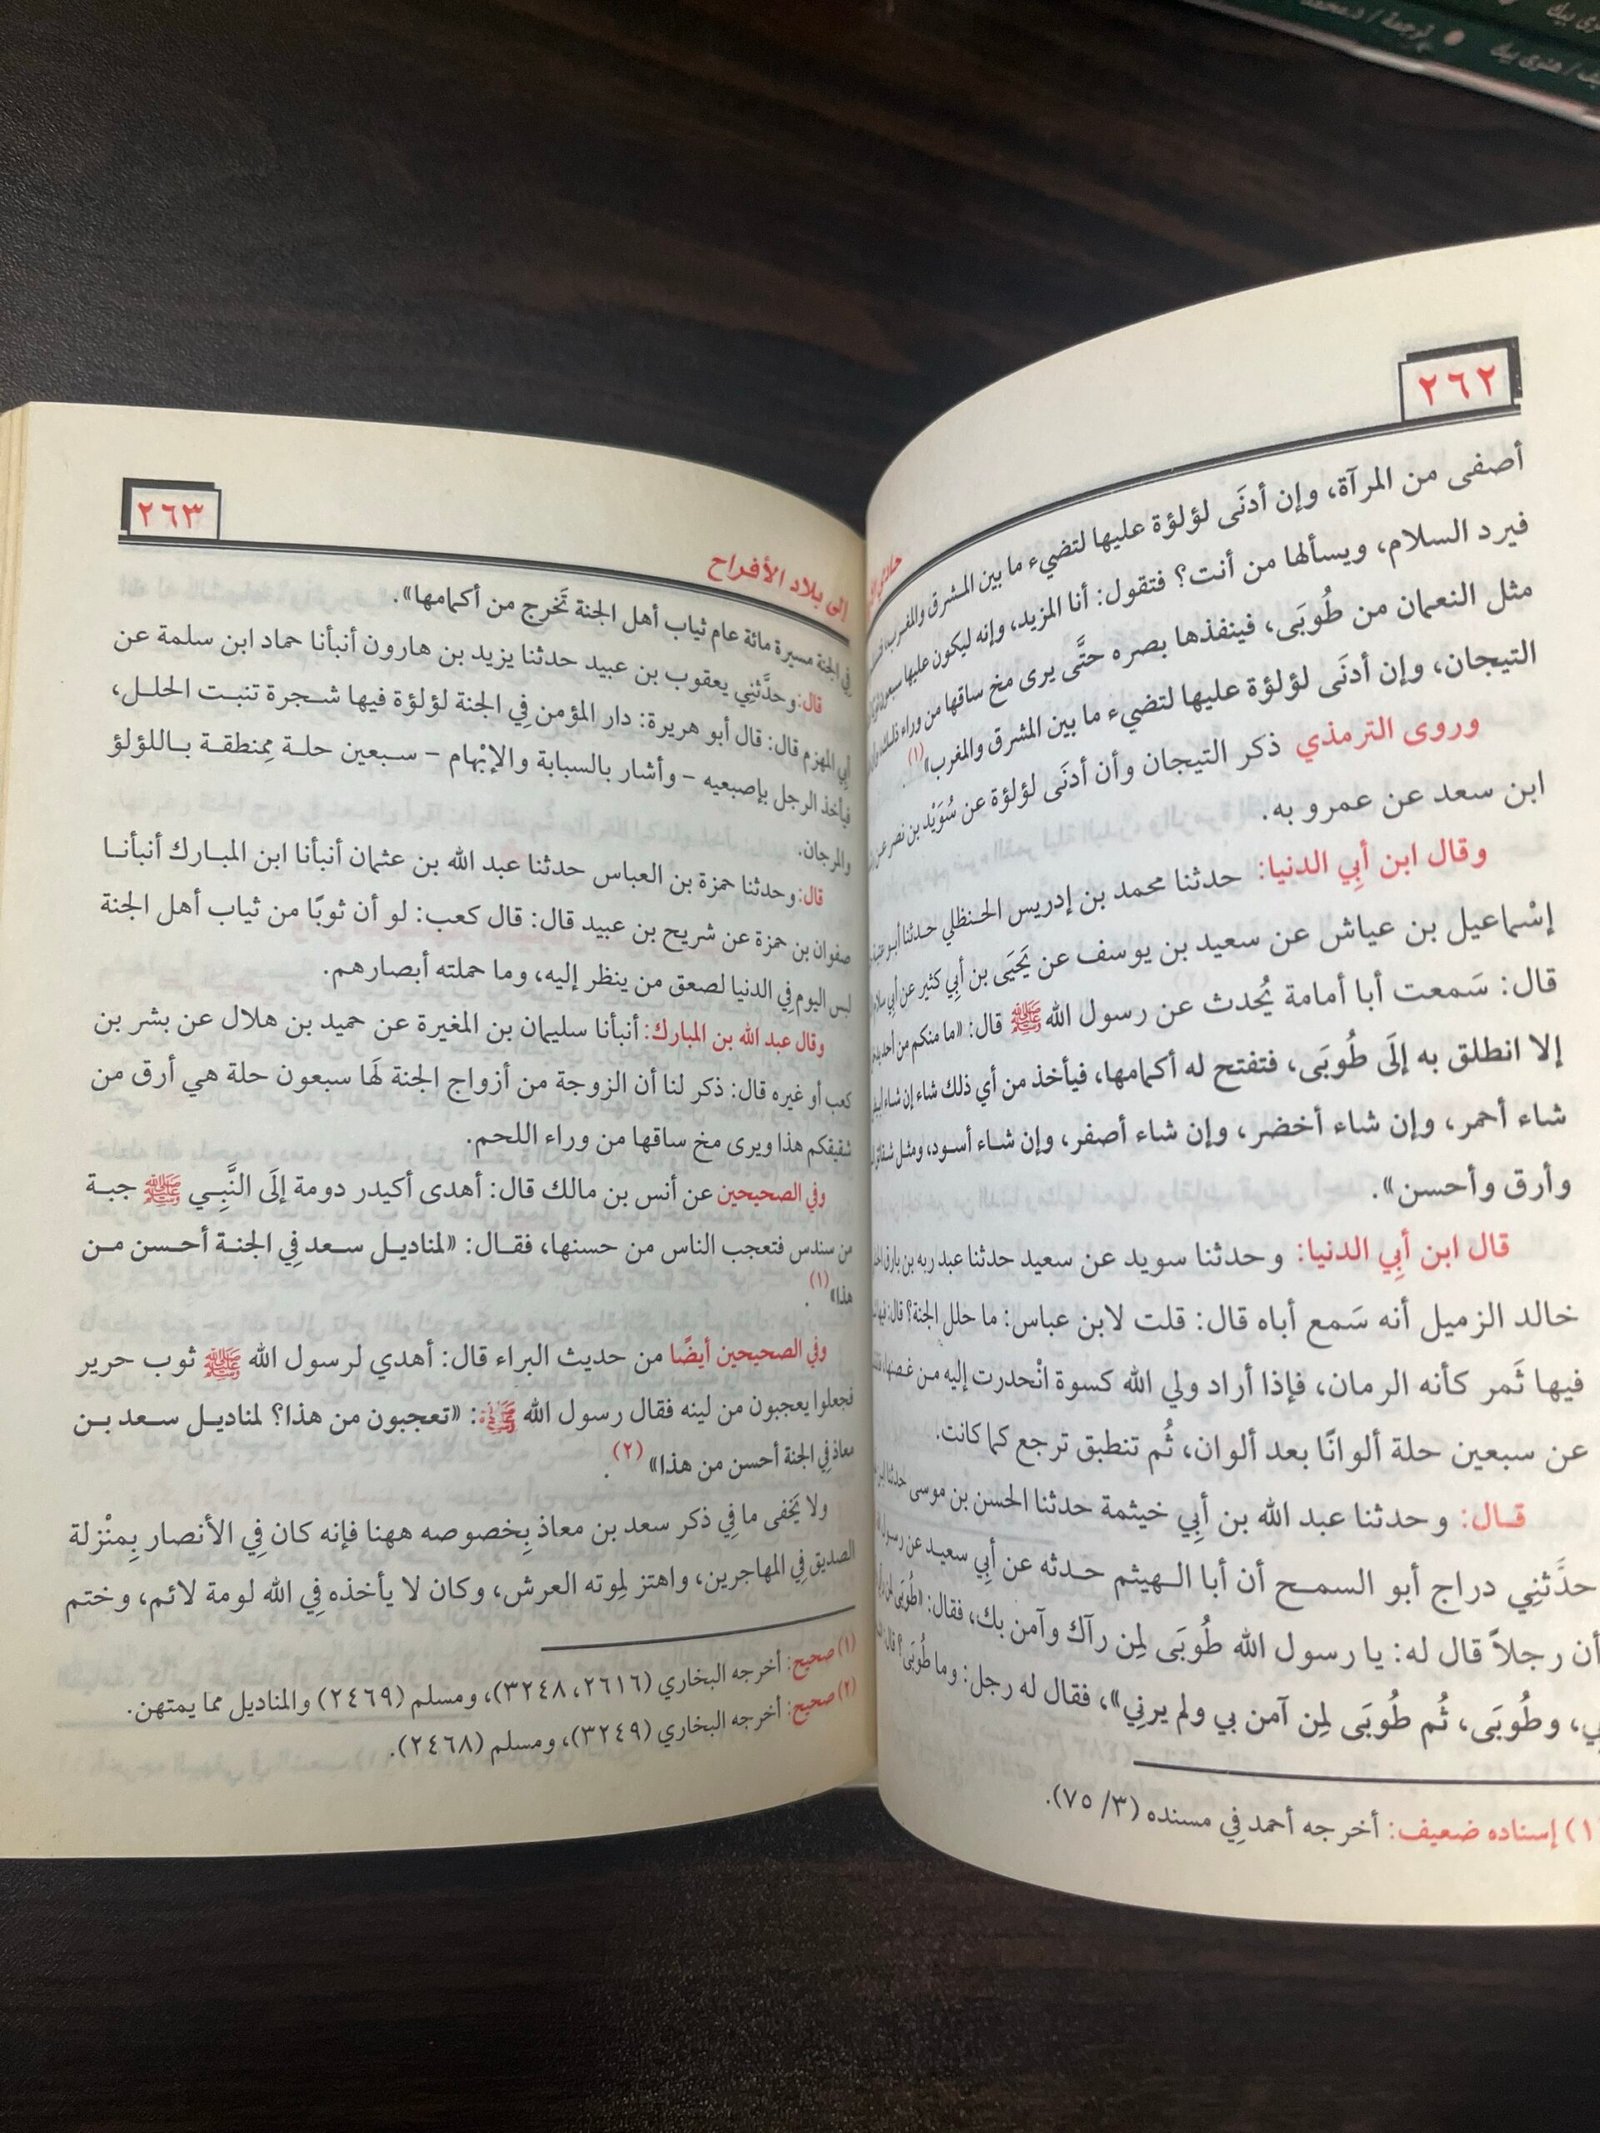 ٢٦٢
أصفى من المرآة، وإن أدنَى لؤلؤة عليها لتضيء ما بين المشرق والمغرب،
فيرد السلام، ويسألها من أنت؟ فتقول: أنا المزيد، وإنه ليكون عليها سبعون
مثل النعمان من طُوبَى، فينفذها بصره حتَّى يرى مخ ساقها من وراء ذلك،
التيجان، وإن أدنَى لؤلؤة عليها لتضيء ما بين المشرق والمغرب» (١).
وروى الترمذي ذكر التيجان وأن أدنَى لؤلؤة عن سُوَيْد بن نصر عن
ابن سعد عن عمرو به.
وقال ابن أبِي الدنيا: حدثنا محمد بن إدريس الحنظلي حدثنا أبو
إسْماعيل بن عياش عن سعيد بن يوسف عن يَحيَى بن أبِي كثير عن أبِي
قال: سَمعت أبا أمامة يُحدث عن رسول الله ﷺ قال: «ما منكم من أحد
إلا انطلق به إلَى طُوبَى، فتفتح له أكمامها، فيأخذ من أي ذلك شاء إن شاء
شاء أحمر، وإن شاء أخضر، وإن شاء أصفر، وإن شاء أسود، ومثل
وأرق وأحسن».
قال ابن أبِي الدنيا: وحدثنا سويد عن سعيد حدثنا عبد ربه بن بارق
خالد الزميل أنه سَمع أباه قال: قلت لابن عباس: ما حلل الجنة؟ قال:
فيها ثَمر كأنه الرمان، فإذا أراد ولي الله كسوة انْحدرت إليه من غصنها،
عن سبعين حلة ألوانًا بعد ألوان، ثُم تنطبق ترجع كما كانت.
قال: وحدثنا عبد الله بن أبِي خيثمة حدثنا الحسن بن موسى حدثنا
حدَّثنِي دراج أبو السمح أن أبا الهيثم حدثه عن أبِي سعيد عن رسول
أن رجلاً قال له: يا رسول الله طُوبَى لِمن رآك وآمن بك، فقال: «طُوبَى لِمن
وطُوبَى، ثُم طُوبَى لِمن آمن بي ولم يرنِي»، فقال له رجل: وما طُوبَى؟ قال:
(١) إسناده ضعيف: أخرجه أحمد فِي مسنده (٣/ ٧٥).
٢٦٣
إلى بلاد الأفراح
فِي الجنة مسيرة مائة عام ثياب أهل الجنة تَخرج من أكمامها».
قال: وحدَّثنِي يعقوب بن عبيد حدثنا يزيد بن هارون أنبأنا حماد ابن سلمة عن
أبِي المهزم قال: قال أبو هريرة: دار المؤمن فِي الجنة لؤلؤة فيها شجرة تنبت الحلل،
فيأخذ الرجل بإصبعيه - وأشار بالسبابة والإبْهام - سبعين حلة مِمنطقة باللؤلؤ
والمرجان.
قال: وحدثنا حمزة بن العباس حدثنا عبد الله بن عثمان أنبأنا ابن المبارك أنبأنا
صفوان بن حمزة عن شريح بن عبيد قال: قال كعب: لو أن ثوبًا من ثياب أهل الجنة
لبس اليوم فِي الدنيا لصعق من ينظر إليه، وما حملته أبصارهم.
وقال عبد الله بن المبارك: أنبأنا سليمان بن المغيرة عن حميد بن هلال عن بشر بن
كعب أو غيره قال: ذكر لنا أن الزوجة من أزواج الجنة لَها سبعون حلة هي أرق من
شفيفكم هذا ويرى مخ ساقها من وراء اللحم.
وفي الصحيحين عن أنس بن مالك قال: أهدى أكيدر دومة إلَى النَّبِي ﷺ جبة
من سندس فتعجب الناس من حسنها، فقال: «لمناديل سعد فِي الجنة أحسن من
هذا» (١).
وفي الصحيحين أيضًا من حديث البراء قال: أهدي لرسول الله ﷺ ثوب حرير
فجعلوا يعجبون من لينه فقال رسول الله ﷺ: «تعجبون من هذا؟ لمناديل سعد بن
معاذ فِي الجنة أحسن من هذا» (٢).
ولا يَخفى ما فِي ذكر سعد بن معاذ بِخصوصه ههنا فإنه كان فِي الأنصار بِمنْزلة
الصديق فِي المهاجرين، واهتز لِموته العرش، وكان لا يأخذه فِي الله لومة لائم، وختم
(١) صحيح: أخرجه البخاري (٢٦١٦، ٣٢٤٨)، ومسلم (٢٤٦٩) والمناديل مما يمتهن.
(٢) صحيح: أخرجه البخاري (٣٢٤٩)، ومسلم (٢٤٦٨).